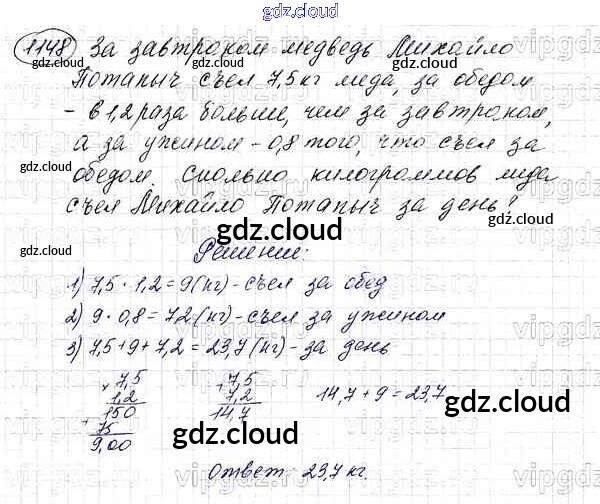 gdz.cloud
1148 За завтраком медведь Михайло
Потапыч съел 7,5 кг меда, за обедом
- в 1,2 раза больше, чем за завтраком,
а за ужином - 0,8 того, что съел за
обедом. Сколько килограммов меда
съел Михайло Потапыч за день?
Решение:
1) 7,5 · 1,2 = 9 (кг) - съел за обед
2) 9 · 0,8 = 7,2 (кг) - съел за ужином
3) 7,5 + 9 + 7,2 = 23,7 (кг) - за день
× 7,5
1,2
150
+ 75
9,00
+ 7,5
7,2
14,7
14,7 + 9 = 23,7
Ответ: 23,7 кг.